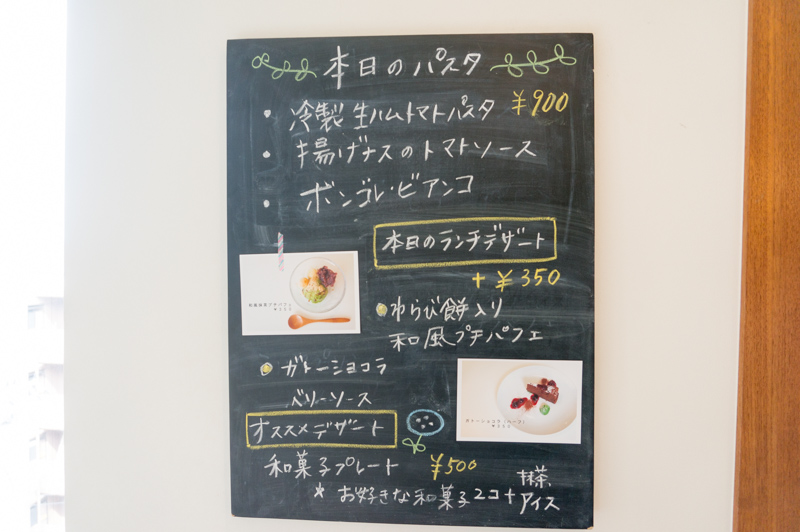 本日のパスタ
・冷製 生ハムトマトパスタ ¥900
・揚げナスのトマトソース
・ボンゴレ・ビアンコ
本日のランチデザート
+ ¥350
わらび餅入り
和風プチパフェ
ガトーショコラ
ベリーソース
オススメデザート
和菓子プレート ¥500
* お好きな和菓子2コ+抹茶アイス